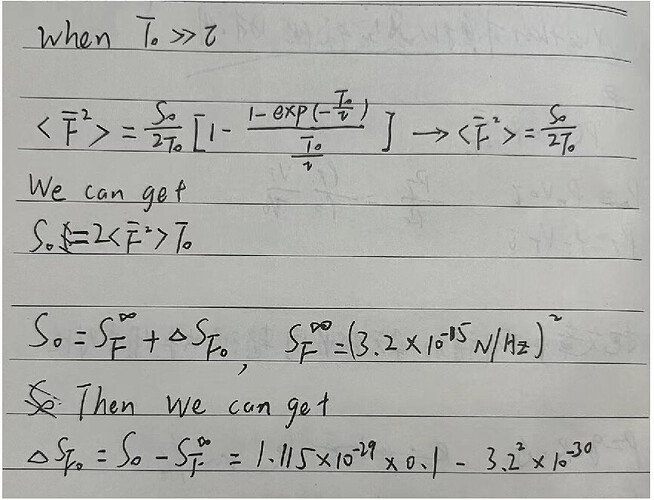 When T₀ ≫ τ
< F̄² > = S₀/2T₀ [1 - (1-exp(-T₀/τ))/(T₀/τ)] → < F̄² > = S₀/2T₀
We can get
S₀ = 2< F̄² > T₀
S₀ = S_F^∞ + ΔS_F₀, S_F^∞ = (3.2 × 10^-15 N/Hz)^2
Then we can get
ΔS_F₀ = S₀ - S_F^∞ = 1.115×10^-29 × 0.1 - 3.2² × 10^-30